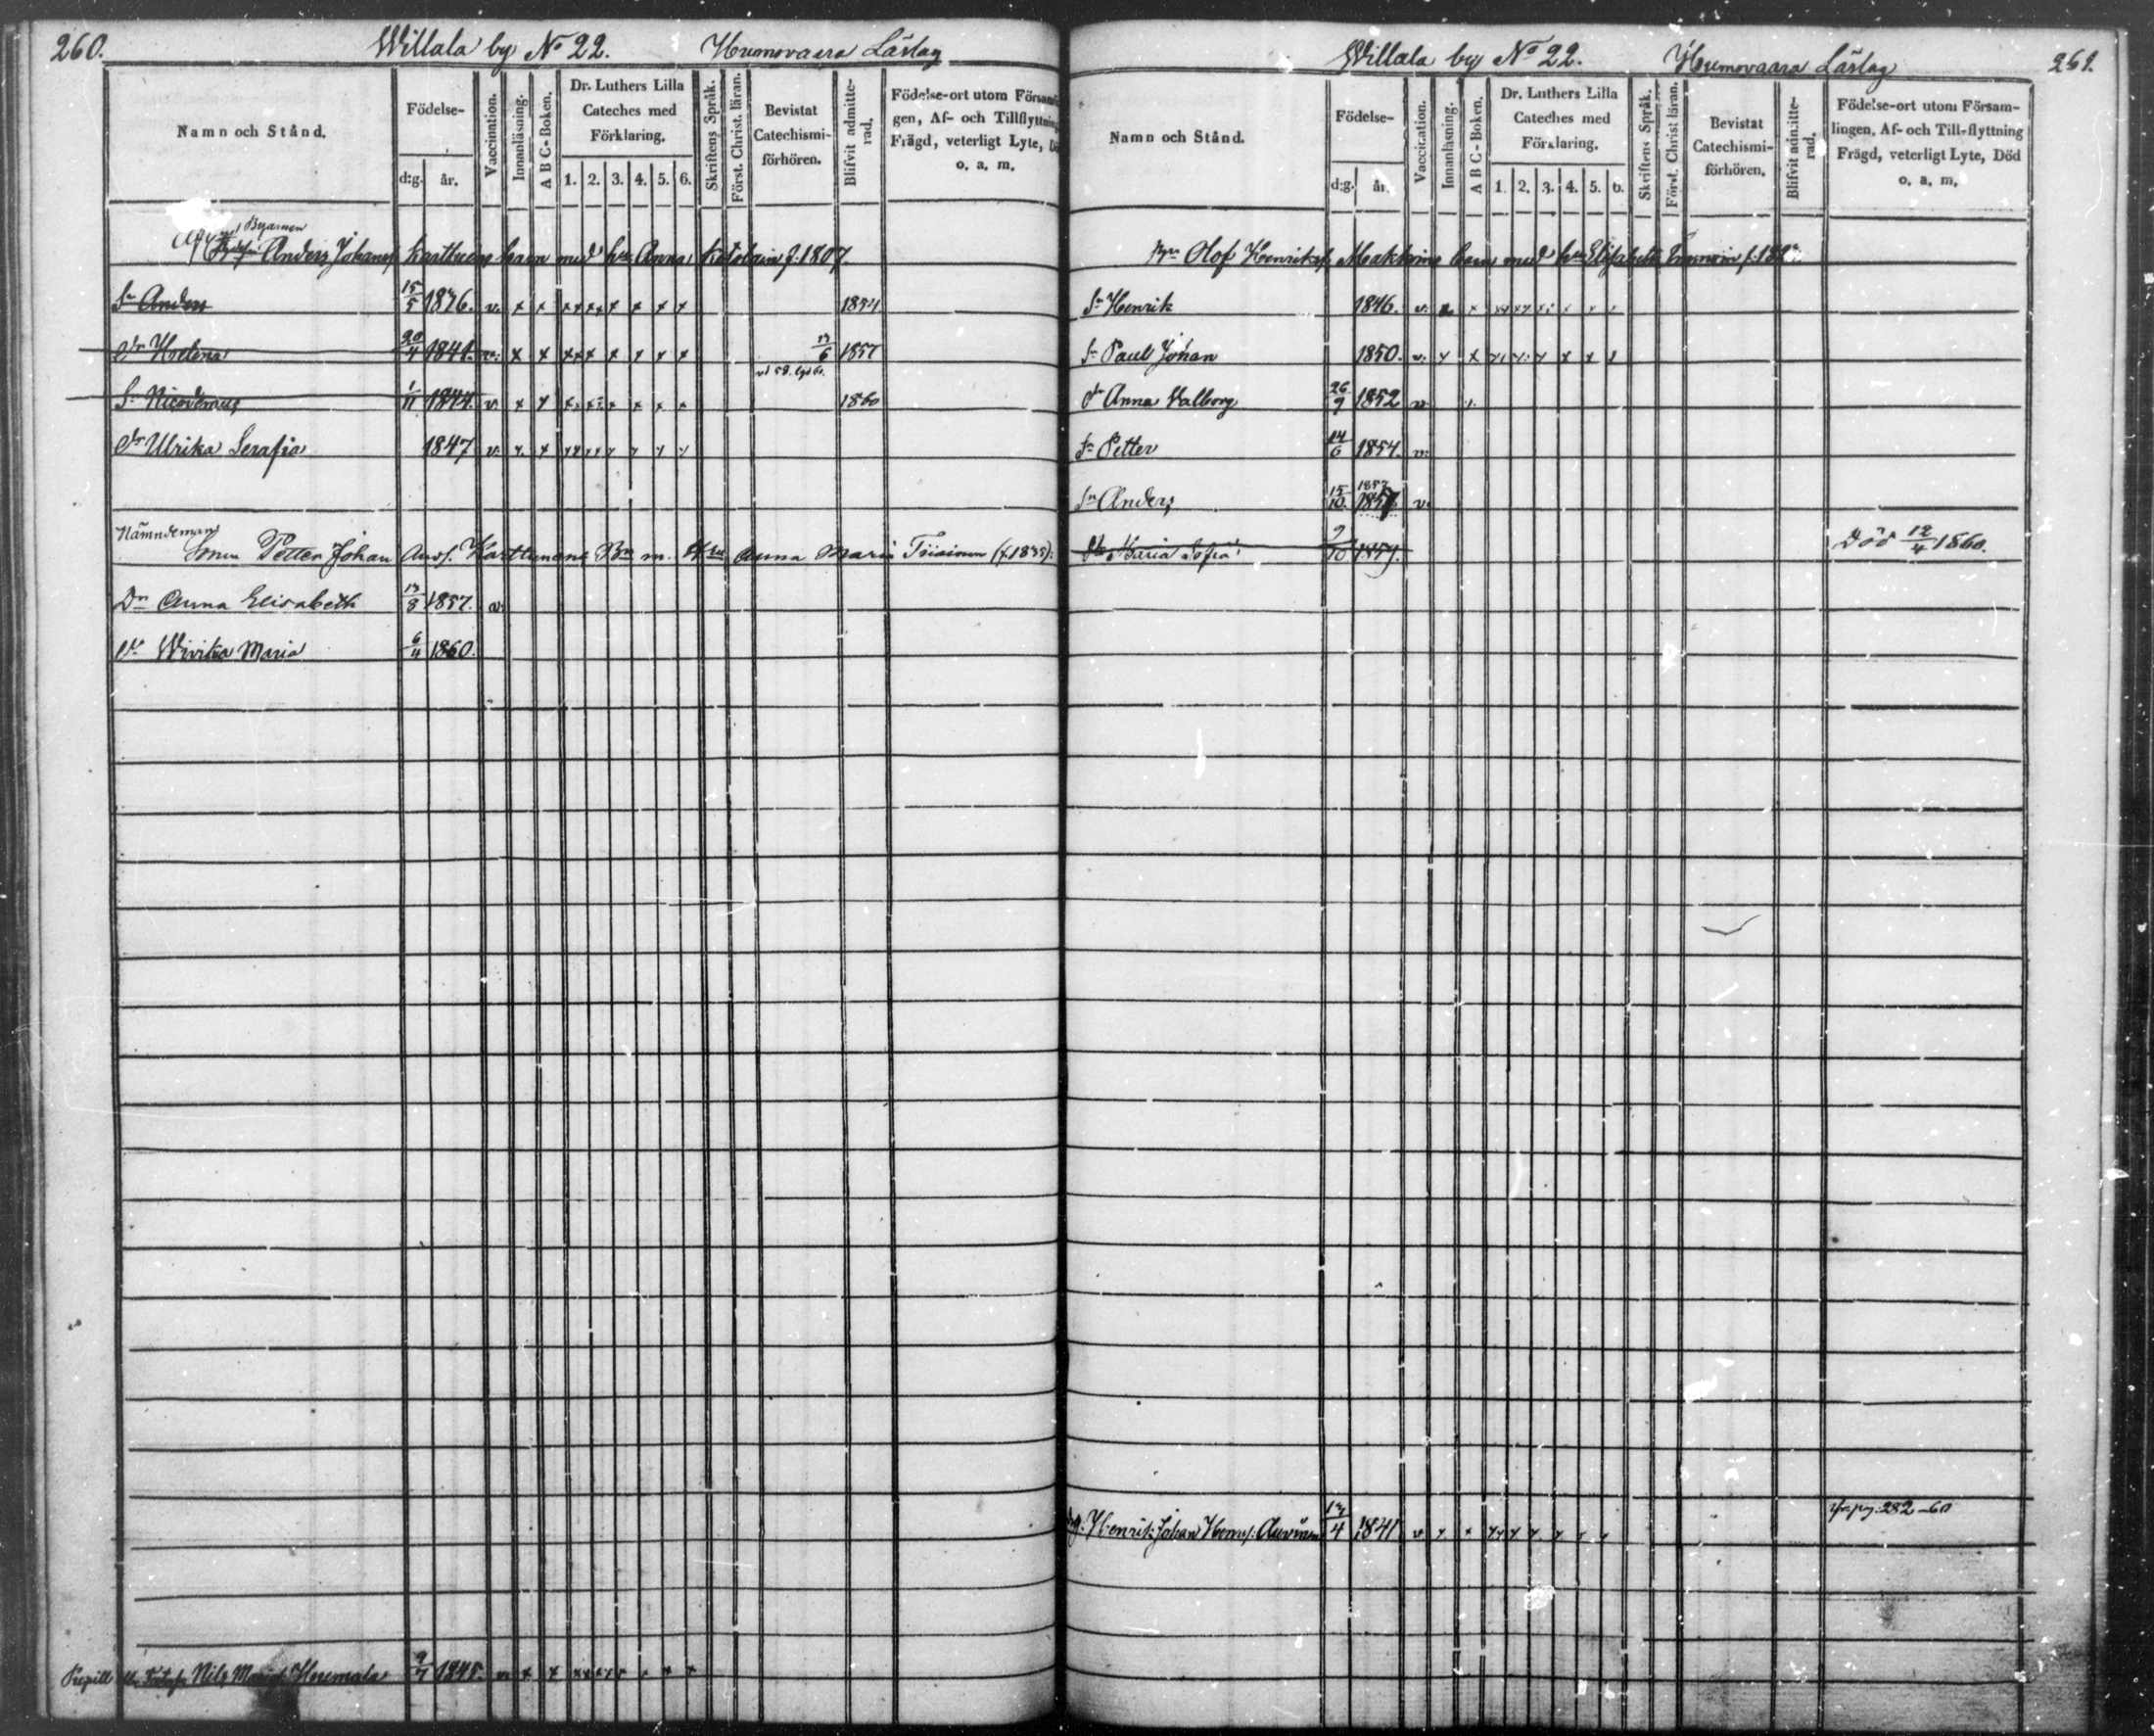 260.
Willala by No 22. Humovaara Läslag
Namn och Stånd.
Födelse-
d:g. år.
Vaccination.
Innanläsning.
A B C-Boken.
Dr. Luthers Lilla
Cateches med
Förklaring.
1. 2. 3. 4. 5. 6.
Skriftens Språk.
Först. Christ. läran.
Bevistat
Catechismi-
förhören.
Blifvit admitte-
rad.
Födelse-ort utom Försam
gen, Af- och Tillflyttning
Frägd, veterligt Lyte, Dö
o. a. m.
Byamen
Anders Johans Karttuens barn med hu Anna f. 1807.
Sn Anders 15/5 1836. v. x x x x x x x x x x 1854
Dr Helena 20/4 1841. v. x x x x x x x x x 17/6 1857
Sn Nicodemus 1/11 1844. v. x x x x x x x x 1860
Dr Ulrika Serafia 1847 v. x x x x x x x x
Nämndeman
Sonen Petter Johan Ands. Karttunens Bn m. Hu Anna Maria Tiiainen (f. 1835):
Dr Anna Elisabeth 13/8 1857. v.
Dr Wivika Maria 6/4 1860.
Pupill Nils Humala 9/7 1845. v. x x x x x x x x x
Willala by No 22. Humovaara Läslag
261.
Namn och Stånd.
Födelse-
d:g. år.
Vaccination.
Innanläsning.
A B C-Boken.
Dr. Luthers Lilla
Cateches med
Förklaring.
1. 2. 3. 4. 5. 6.
Skriftens Språk.
Först. Christ läran.
Bevistat
Catechismi-
förhören.
Blifvit admitte-
rad.
Födelse-ort utom Försam-
lingen, Af- och Till-flyttning
Frägd, veterligt Lyte, Död
o. a. m.
Olof Henriks Makkoins barn med hu Elisabeth
Sn Henrik 1846. v. x x x x x
Sn Paul Johan 1850. v. x x x x x x x
Dr Anna Valborg 26/9 1852 v.
Sn Petter 14/6 1854. v.
1857
Sn Anders 15/10 1857 v.
Dr Maria Sofia 9/10 1859. Död 12/4 1860.
Henrik Johan Henrs. Auvinen 13/4 1841 v x x x x x x x x x 282-60